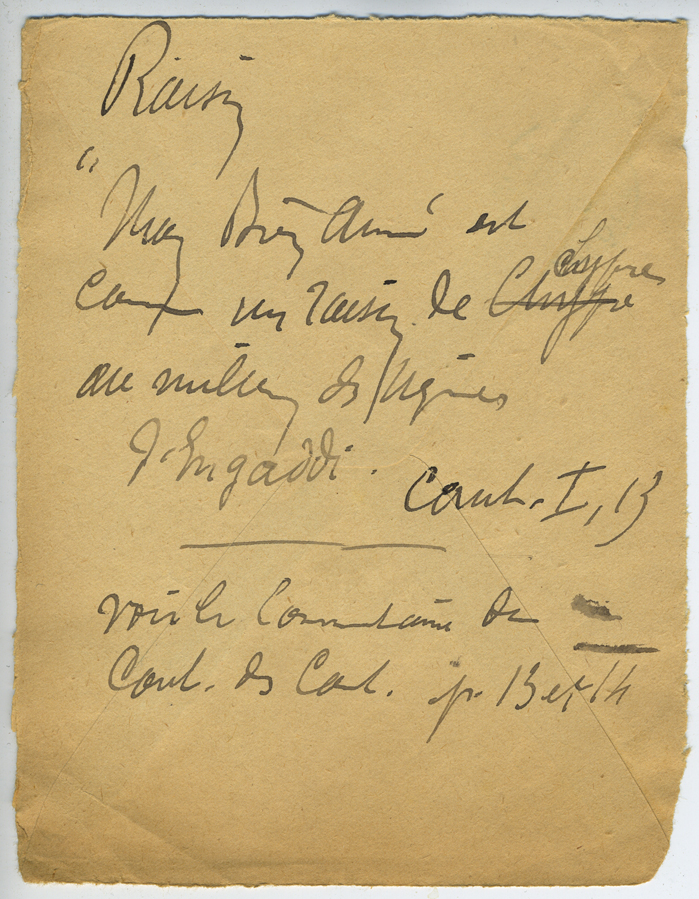 Raisin
"Mon Bien Aimé est
Cypres
comme un raisin de Chypre
au milieu des Vignes
d'Engaddi.
Cant. I, 13
voir le Commentaire du
Cant. des Cant. p. 13 et 14